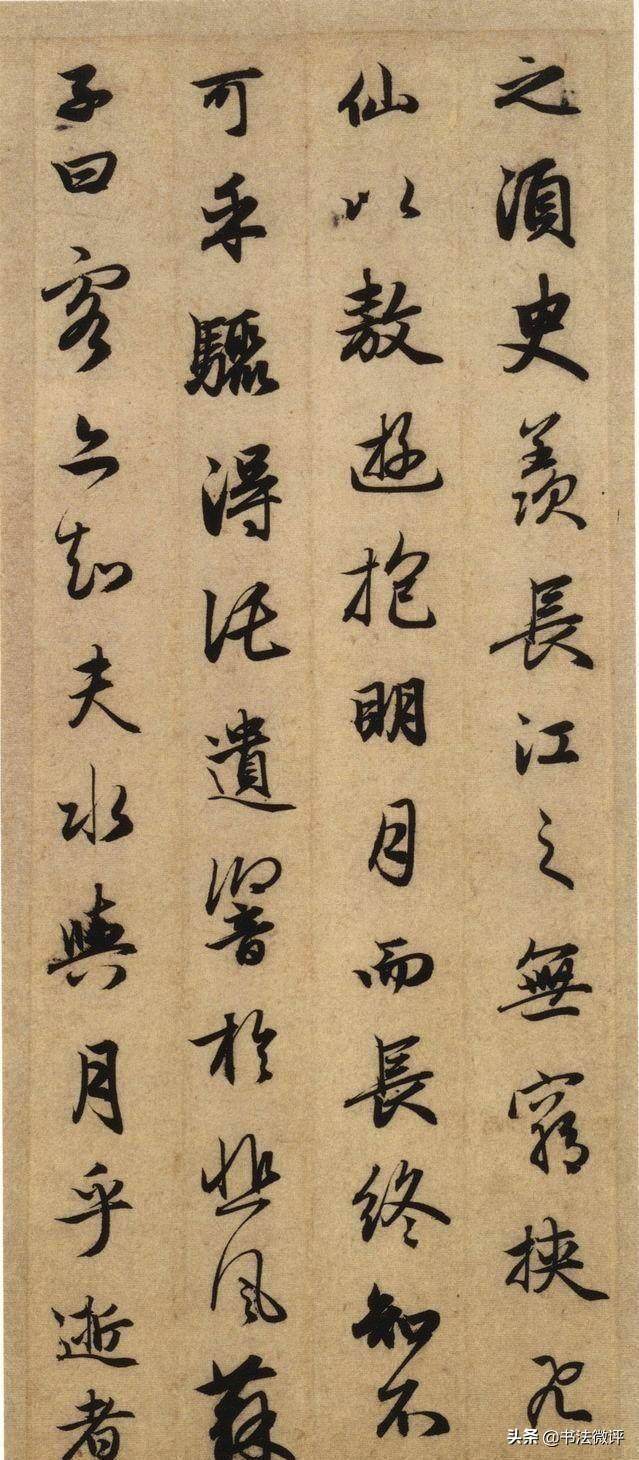 之須臾羨長江之無窮挾飛
仙以敖遊抱明月而長終知不
可乎驟得託遺響於悲風蘇
子曰客亦知夫水與月乎逝者
头条 @书法微评